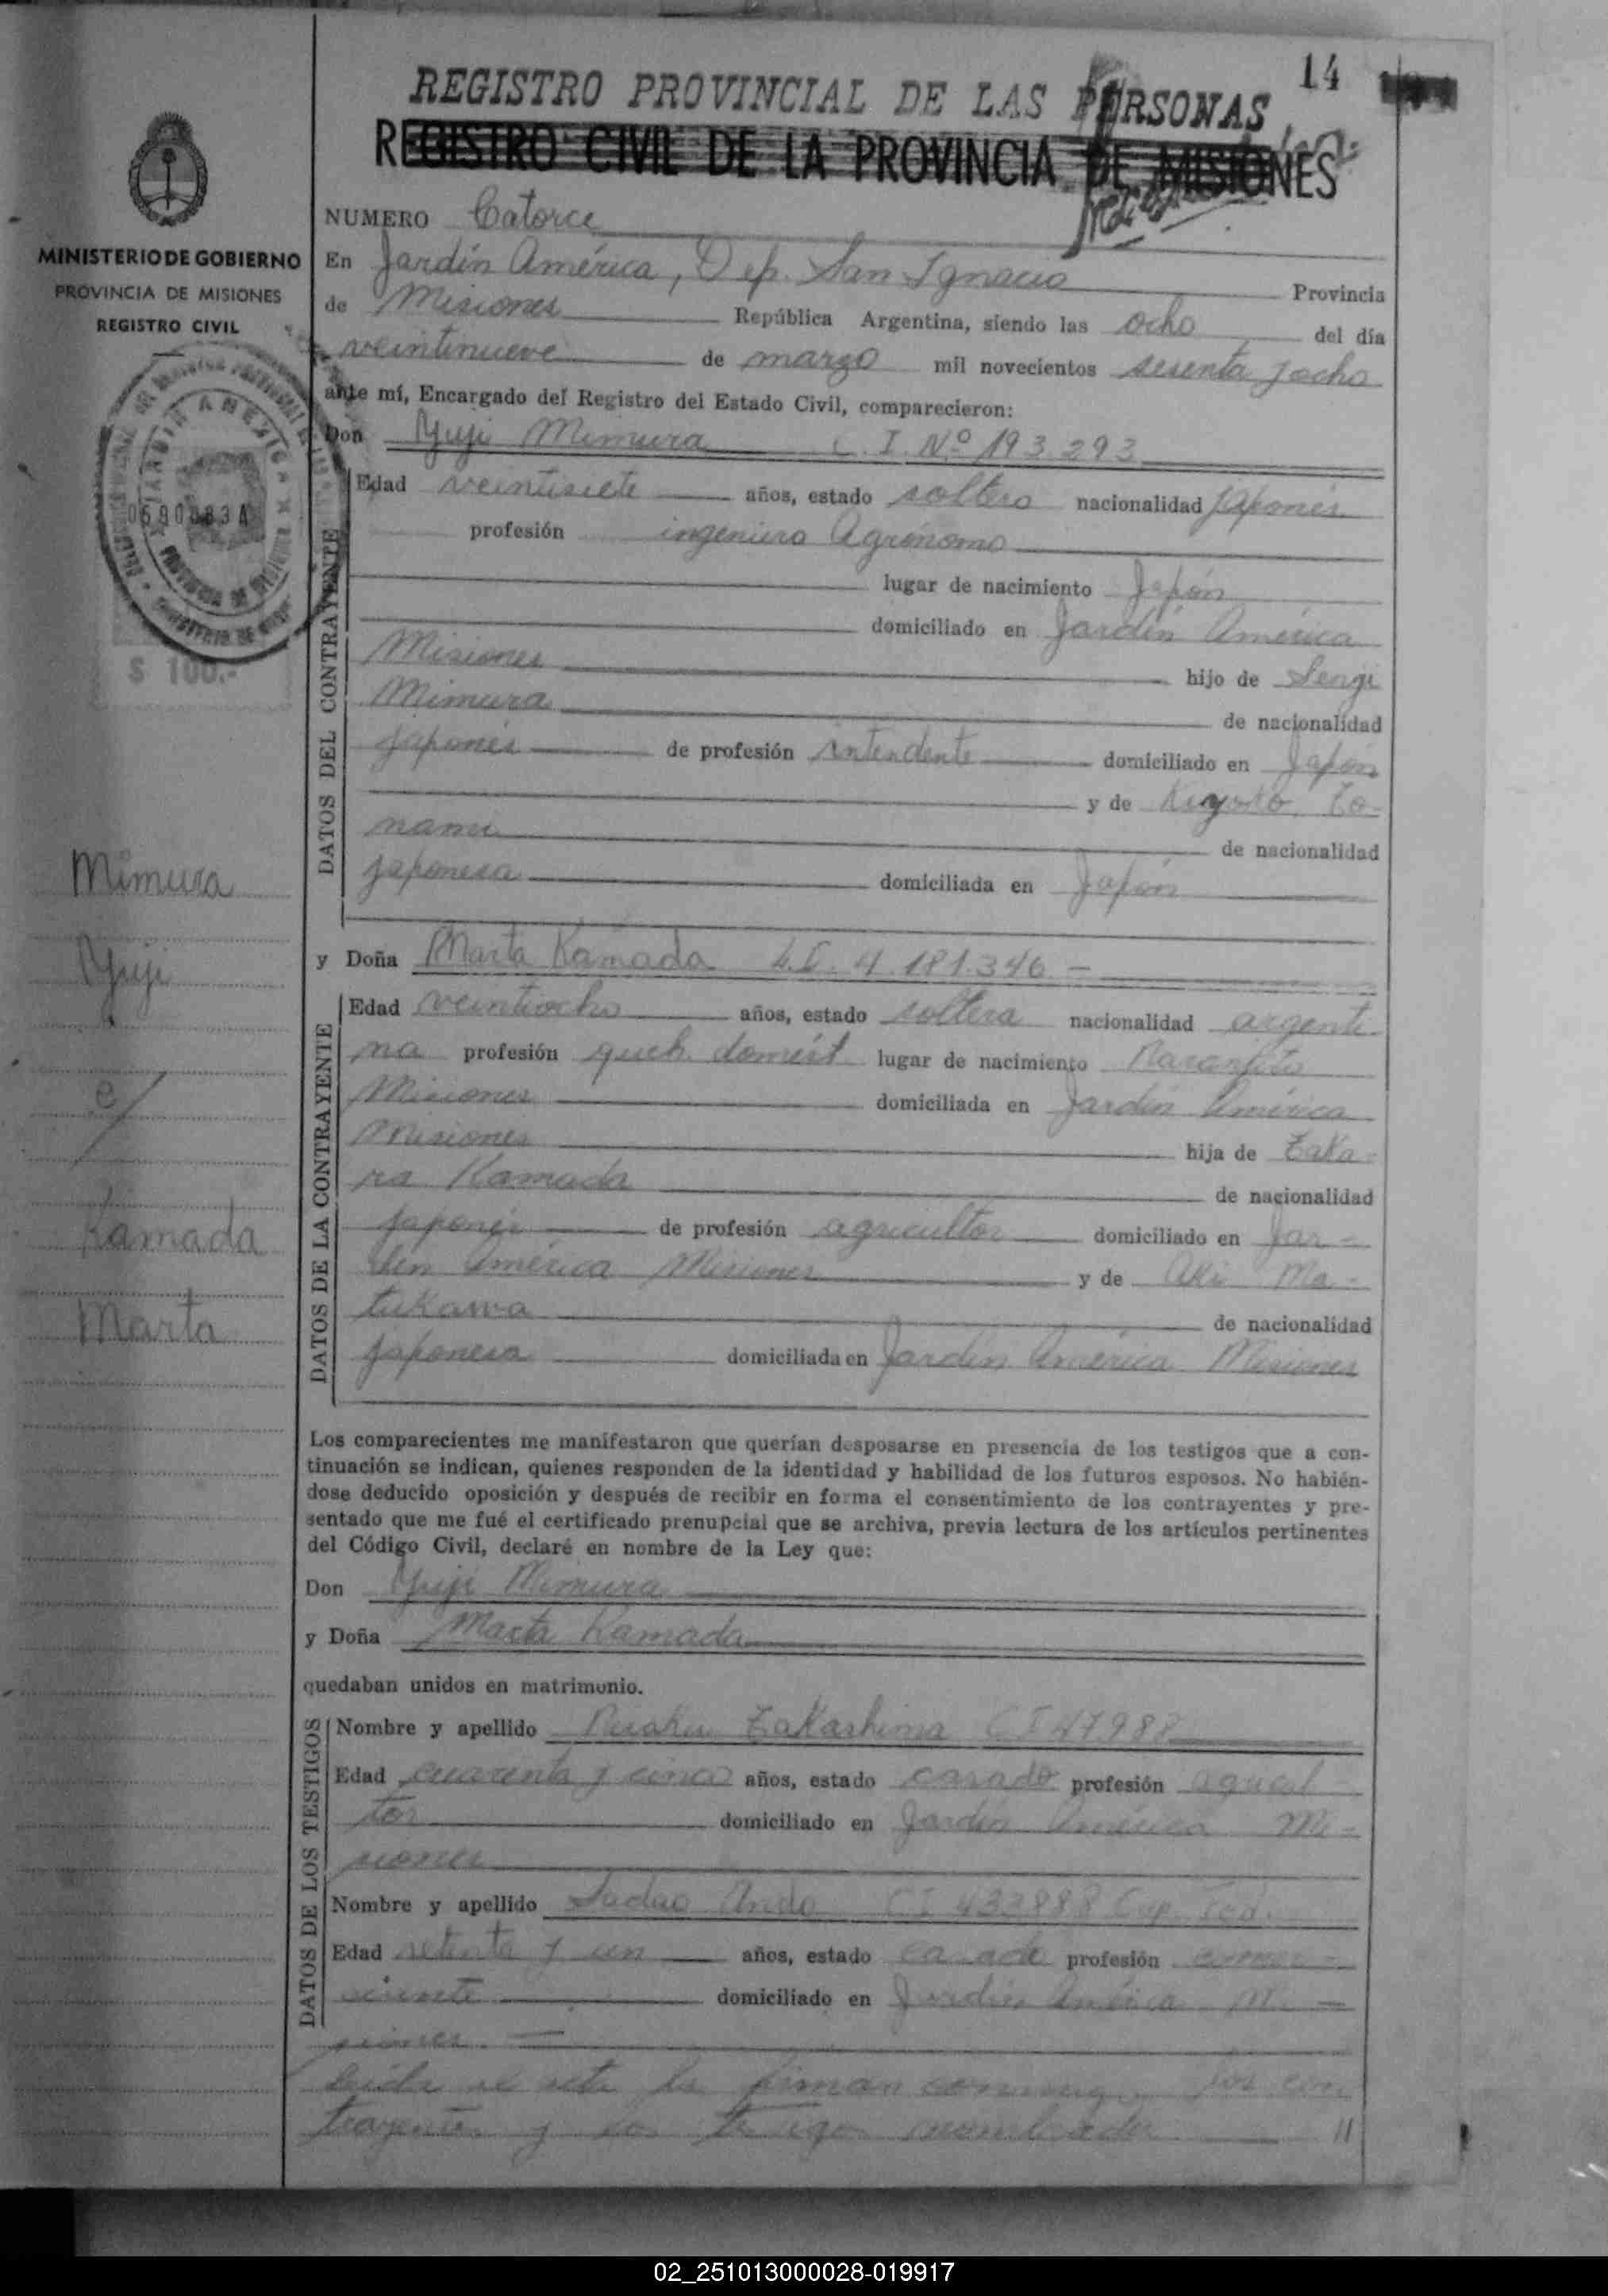 14
REGISTRO PROVINCIAL DE LAS PERSONAS
REGISTRO CIVIL DE LA PROVINCIA DE MISIONES
MINISTERIO DE GOBIERNO
PROVINCIA DE MISIONES
REGISTRO CIVIL
$ 100.-
Mimura
Yuji
c/
Kamada
Marta
NUMERO Catorce
En Jardín América, Dep. San Ignacio Provincia
de Misiones República Argentina, siendo las ocho del día
veintinueve de marzo mil novecientos sesenta y ocho
ante mí, Encargado del Registro del Estado Civil, comparecieron:
Don Yuji Mimura C. I. Nº 193.293
DATOS DEL CONTRAYENTE
Edad veintisiete años, estado soltero nacionalidad japonés
profesión ingeniero Agrónomo
lugar de nacimiento Japón
domiciliado en Jardín América
Misiones hijo de Sengi
Mimura de nacionalidad
japonés de profesión intendente domiciliado en Japón
y de Kiyoko To-
nami de nacionalidad
japonesa domiciliada en Japón
y Doña Marta Kamada L.C. 4.181.346 -
DATOS DE LA CONTRAYENTE
Edad veintiocho años, estado soltera nacionalidad argenti-
na profesión queh. domést. lugar de nacimiento Naranjito
Misiones domiciliada en Jardín América
Misiones hija de Taka-
ra Kamada de nacionalidad
japonés de profesión agricultor domiciliado en Jar-
dín América Misiones y de Aki Ma-
tukawa de nacionalidad
japonesa domiciliada en Jardín América Misiones
Los comparecientes me manifestaron que querían desposarse en presencia de los testigos que a con-
tinuación se indican, quienes responden de la identidad y habilidad de los futuros esposos. No habién-
dose deducido oposición y después de recibir en forma el consentimiento de los contrayentes y pre-
sentado que me fué el certificado prenupcial que se archiva, previa lectura de los artículos pertinentes
del Código Civil, declaré en nombre de la Ley que:
Don Yuji Mimura
y Doña Marta Kamada
quedaban unidos en matrimonio.
DATOS DE LOS TESTIGOS
Nombre y apellido Takashima CI 47.988
Edad cuarenta y cinco años, estado casado profesión agricul-
tor domiciliado en Jardín América Mi-
siones
Nombre y apellido Sadao Ando CI 433888 Cap. Fed.
Edad setenta y un años, estado casado profesión comer-
ciante domiciliado en Jardín América Mi-
siones. -
Leída el acta la firman conmigo los con
trayentes y los testigos nombrados //
02_251013000028-019917